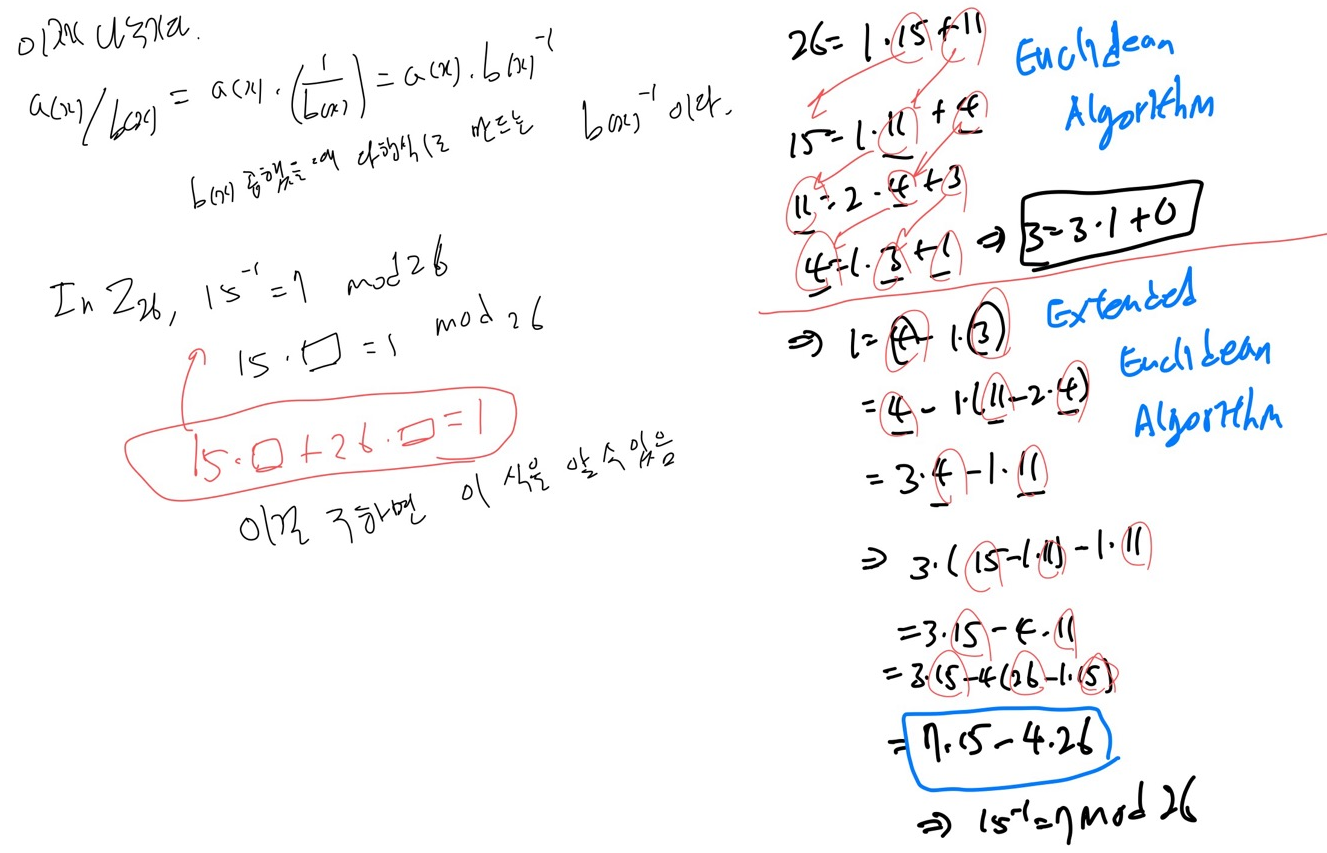 이제 나누자.
a(x)/b(x) = a(x)·(1/b(x)) = a(x)·b(x)⁻¹
b(x) 곱했을때 다항식1로 만드는 b(x)⁻¹ 이다.
In Z₂₆, 15⁻¹=7 mod 26
15·□=1 mod 26
15·□+26·□=1
이걸 구하면 이 식을 알 수 있음
26=1·15+11
Euclidean
Algorithm
15=1·11+4
11=2·4+3
4=1·3+1 ⇒ 3=3·1+0
⇒ 1=4-1·3
Extended
Euclidean
Algorithm
=4-1·(11-2·4)
=3·4-1·11
⇒ 3·(15-1·11)-1·11
=3·15-4·11
=3·15-4(26-1·15)
=7·15-4·26
⇒ 15⁻¹=7 mod 26